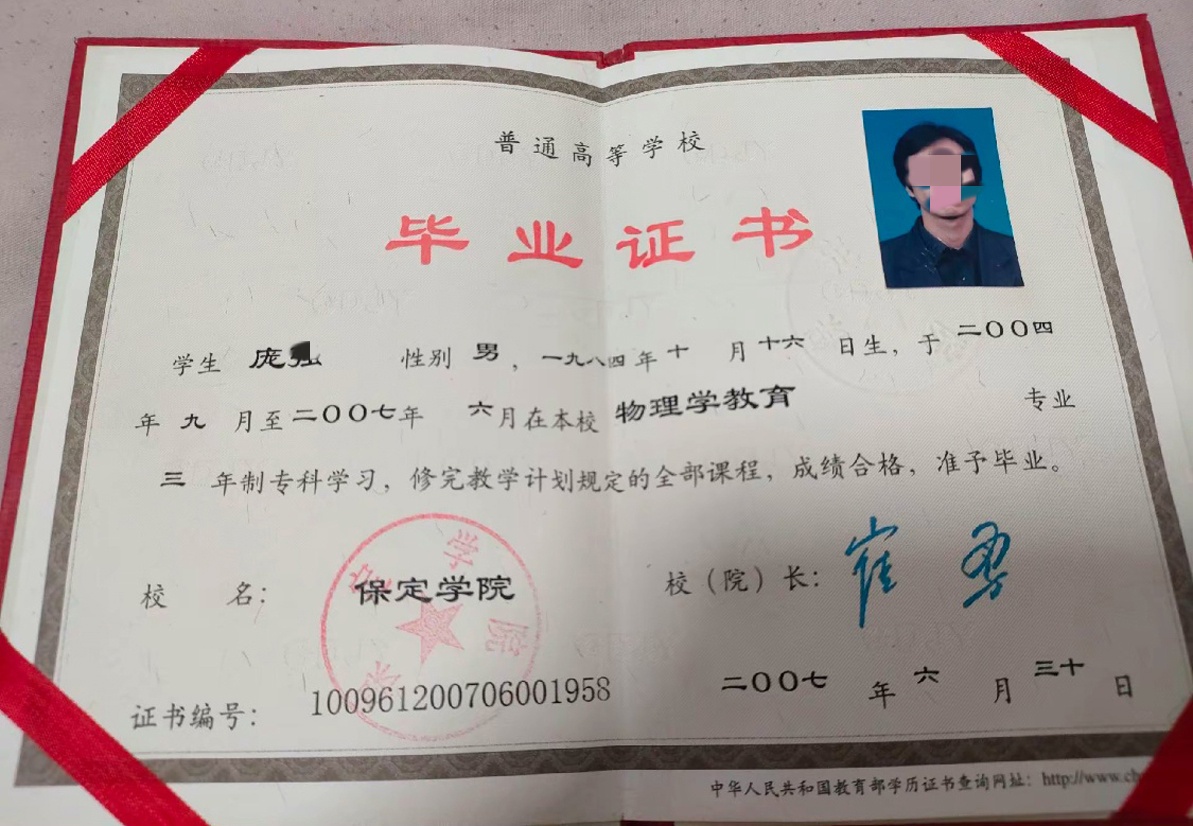 普通高等学校
毕业证书
学生 庞 性别 男，一九八四年十月十六日生，于二〇〇四
年九月至二〇〇七年六月在本校物理学教育专业
三年制专科学习，修完教学计划规定的全部课程，成绩合格，准予毕业。
校名：保定学院 校（院）长：崔勇
证书编号：100961200706001958 二〇〇七年六月三十日
中华人民共和国教育部学历证书查询网址：http://www.ch